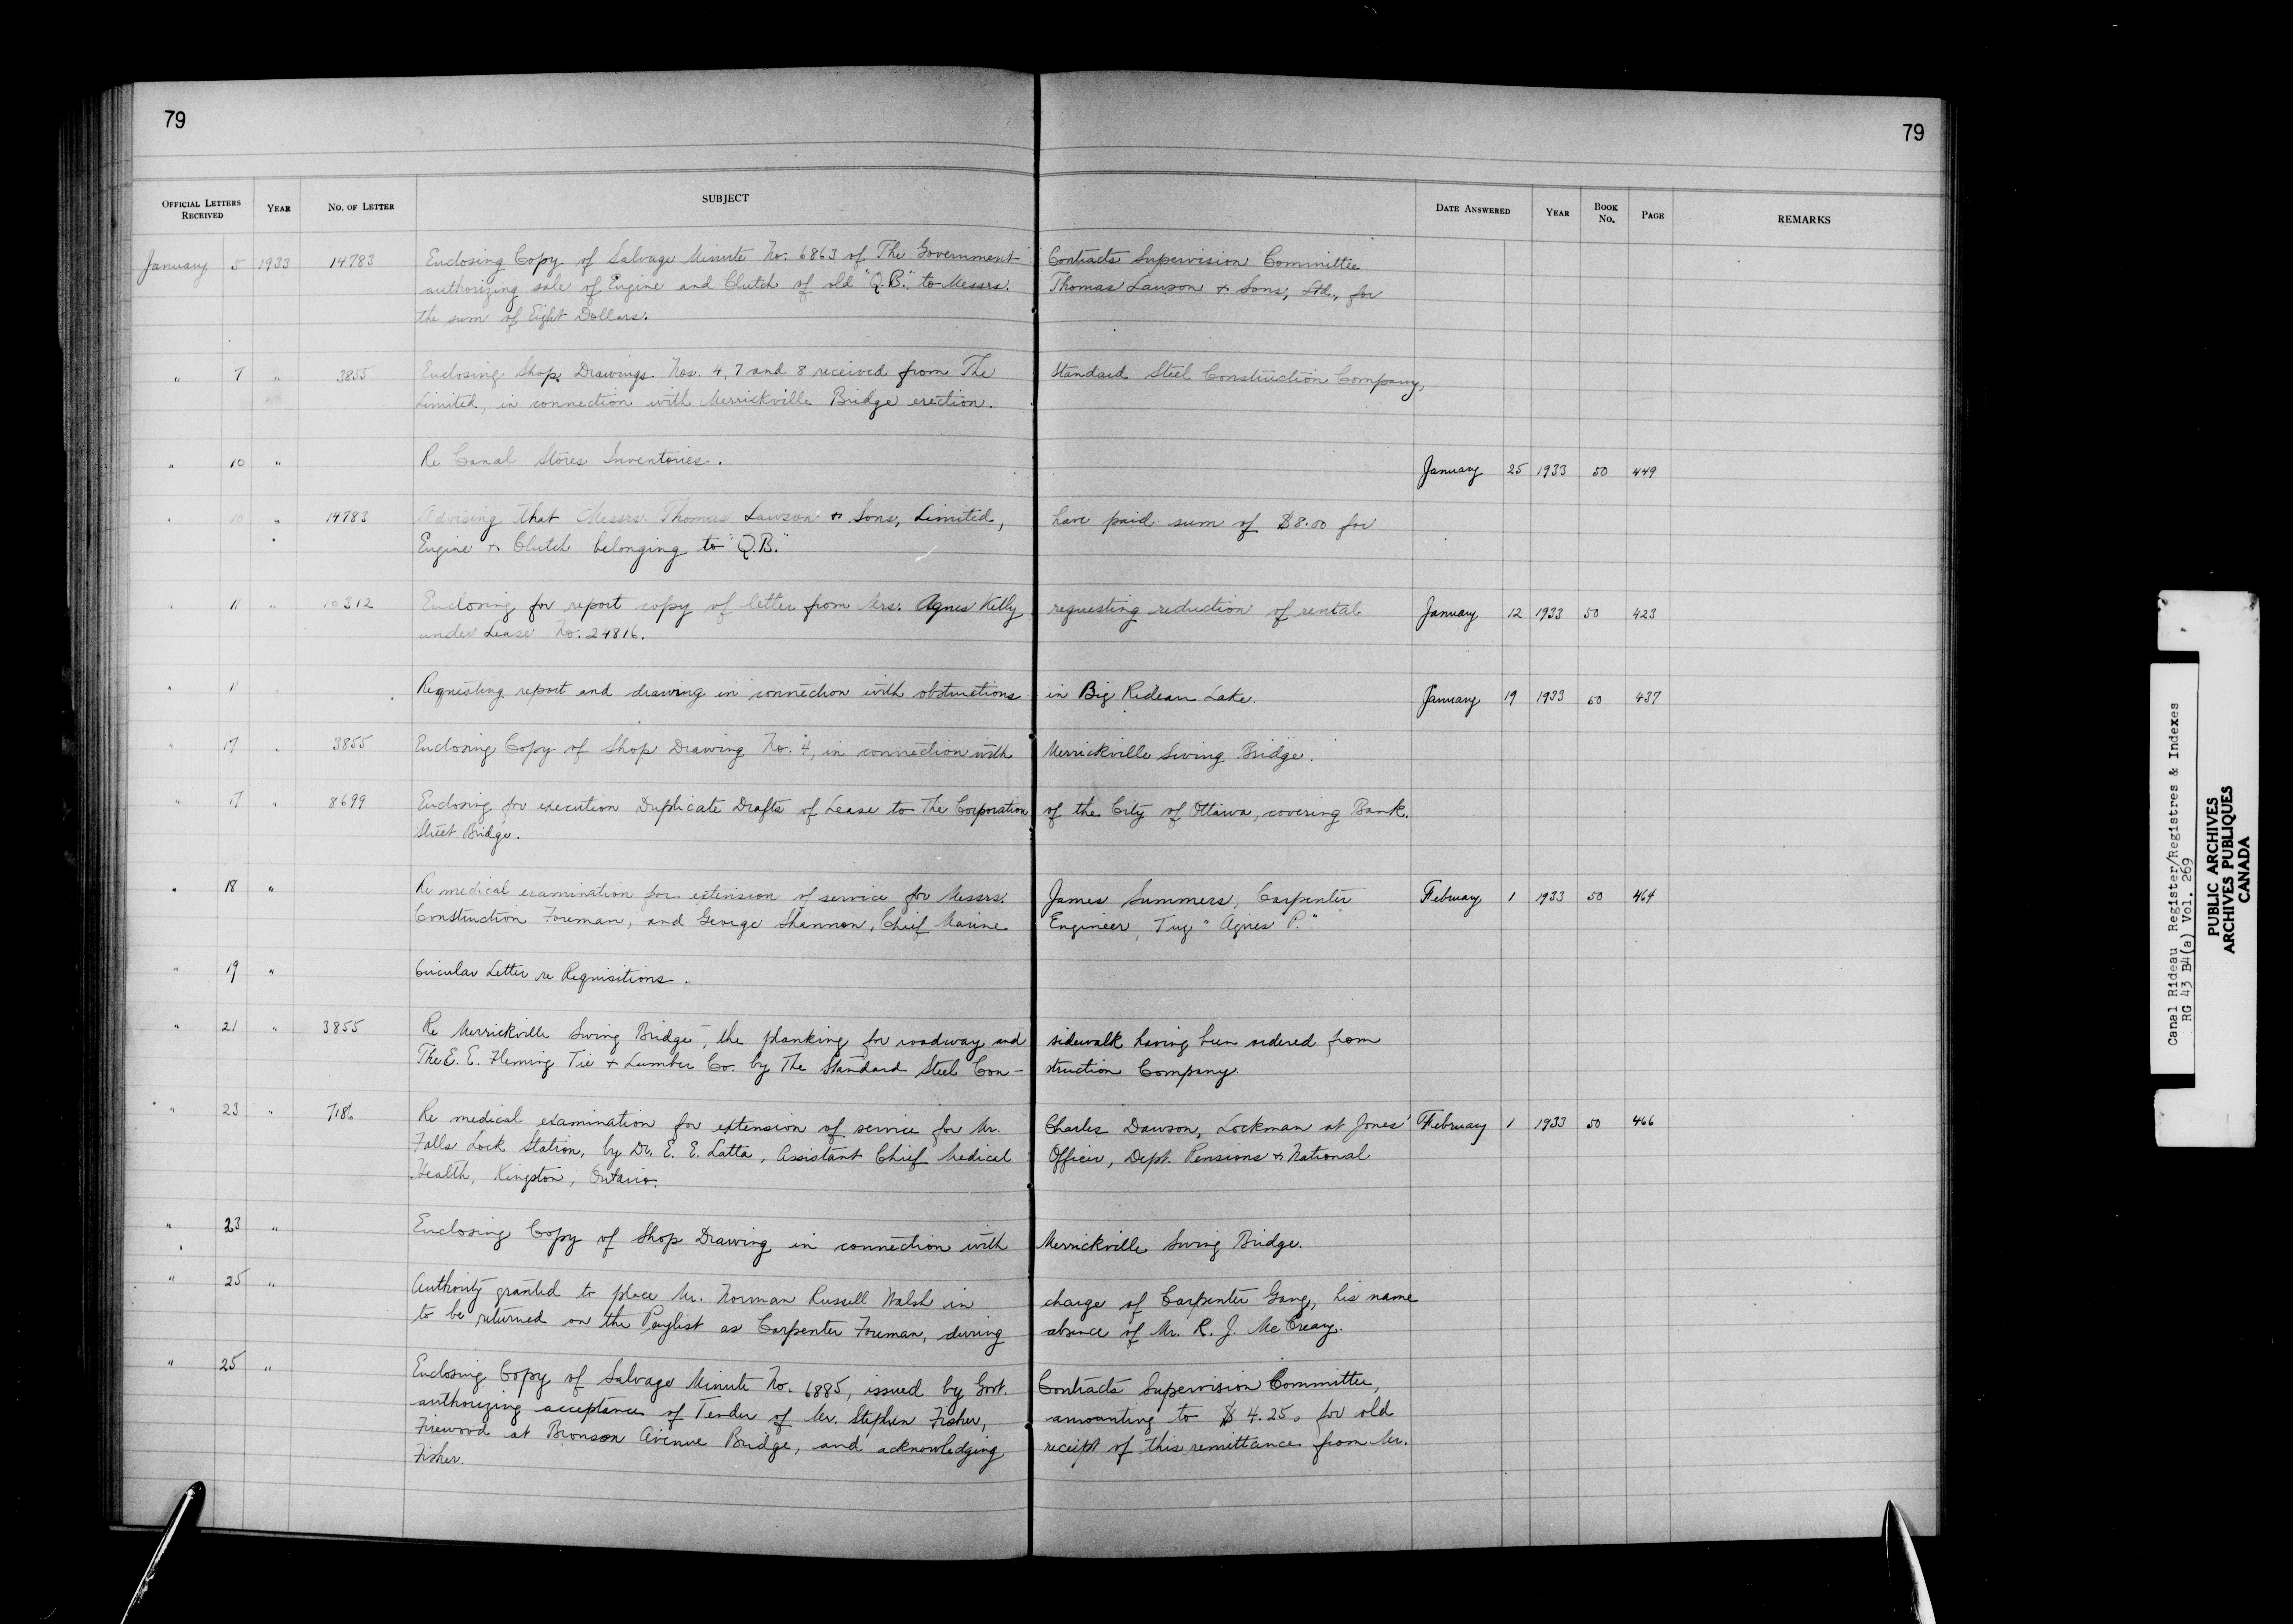 79
79
OFFICIAL LETTERS RECEIVED YEAR NO. OF LETTER SUBJECT DATE ANSWERED YEAR BOOK NO. PAGE REMARKS
January 5 1933 14783 Enclosing Copy of Salvage Minute No. 6863 of The Government Contracts Supervision Committee
authorizing sale of Engine and Clutch of old "Q.B." to Messrs. Thomas Lawson & Sons, Ltd., for
the sum of Eight Dollars.
" 7 " 3855 Enclosing Shop Drawings Nos. 4, 7 and 8 received from The Standard Steel Construction Company,
Limited, in connection with Merrickville Bridge erection.
" 10 " Re Canal Stores Inventories. January 25 1933 50 449
" 10 " 14783 Advising that Messrs. Thomas Lawson & Sons, Limited, have paid sum of $8.00 for
Engine & Clutch belonging to "Q.B."
" 11 " 10312 Enclosing for report copy of letter from Mrs. Agnes Kelly requesting reduction of rental January 12 1933 50 423
under Lease No. 24816.
" 11 " Requesting report and drawing in connection with obstructions in Big Rideau Lake. January 19 1933 50 437
" 17 " 3855 Enclosing Copy of Shop Drawing No. 4, in connection with Merrickville Swing Bridge.
" 17 " 8699 Enclosing for execution Duplicate Drafts of Lease to The Corporation of the City of Ottawa, covering Bank
Street Bridge.
" 18 " Re medical examination for extension of service for Messrs. James Summers, Carpenter February 1 1933 50 464
Construction Foreman, and George Shannon, Chief Marine Engineer, Tug "Agnes P."
" 19 " Circular Letter re Requisitions.
" 21 " 3855 Re Merrickville Swing Bridge, the planking for roadway and sidewalk having been ordered from
The E. E. Fleming Tie & Lumber Co. by The Standard Steel Con- struction Company.
" 23 " 7186 Re medical examination for extension of service for Mr. Charles Dawson, Lockman at Jones' February 1 1933 50 466
Falls Lock Station, by Dr. E. E. Latta, Assistant Chief Medical Officer, Dept. Pensions & National
Health, Kingston, Ontario.
" 23 " Enclosing Copy of Shop Drawing in connection with Merrickville Swing Bridge.
" 25 " Authority granted to place Mr. Norman Russell Walsh in charge of Carpenter Gang, his name
to be returned on the Paylist as Carpenter Foreman, during absence of Mr. R. J. McCreary.
" 25 " Enclosing Copy of Salvage Minute No. 6885, issued by Govt. Contracts Supervision Committee,
authorizing acceptance of Tender of Mr. Stephen Fisher, amounting to $4.25 for old
Firewood at Bronson Avenue Bridge, and acknowledging receipt of this remittance from Mr.
Fisher.
Canal Rideau Register/Registres & Indexes
RG 43 B4(a) Vol. 269
PUBLIC ARCHIVES
ARCHIVES PUBLIQUES
CANADA